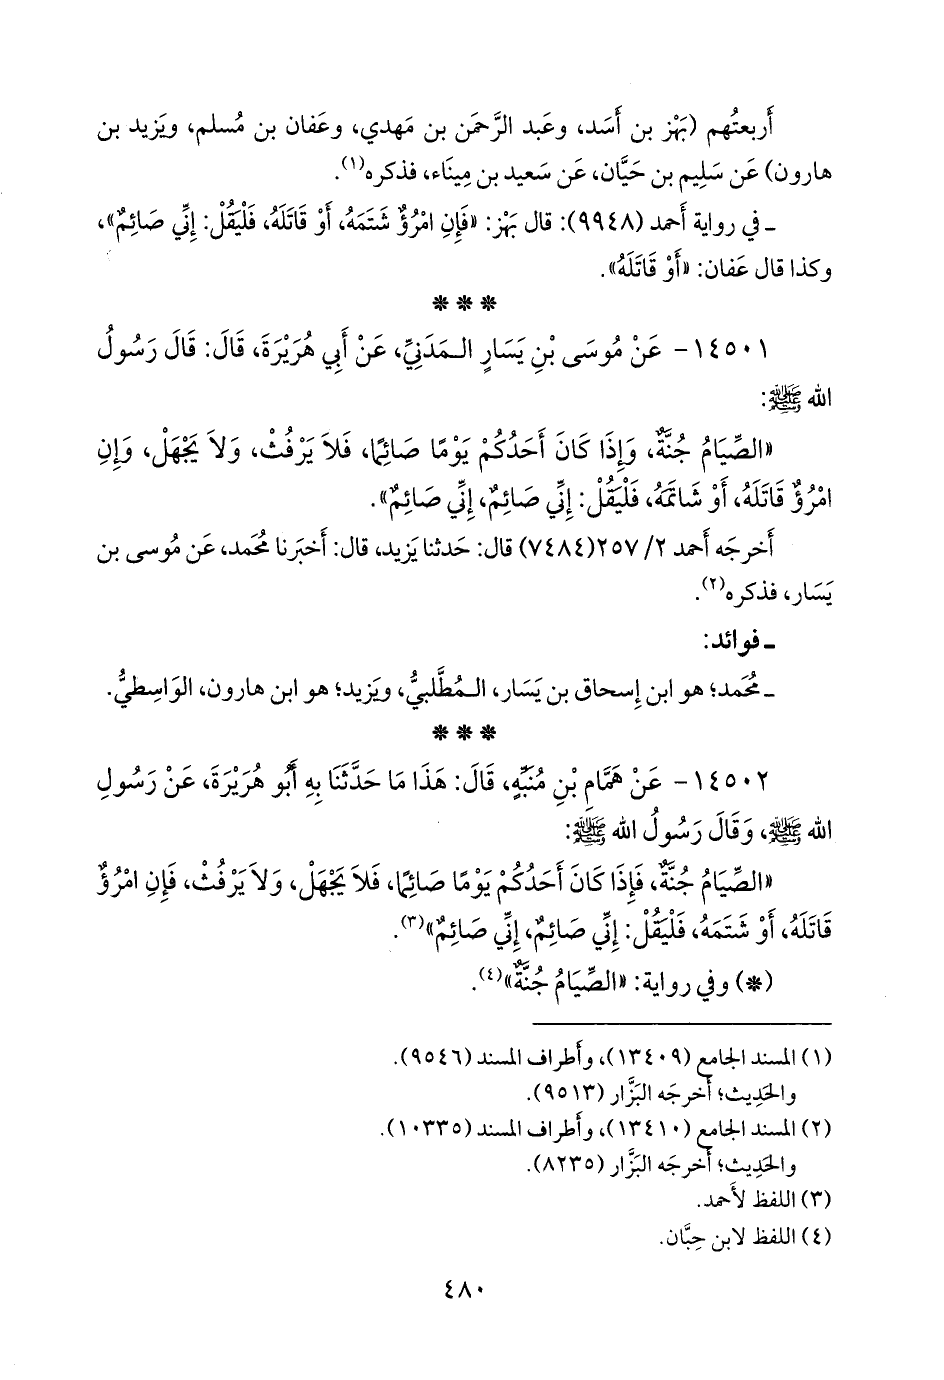 أَربعتُهم (بَهْز بن أَسَد، وعَبد الرَّحمَن بن مَهدي، وعَفان بن مُسلم، ويَزيد بن
هارون) عَن سَلِيم بن حَيَّان، عَن سَعيد بن مِينَاء، فذكره(١).
ـ في رواية أَحمد (٩٩٤٨): قال بَهْز: «فَإِنِ امْرُؤٌ شَتَمَهُ، أَوْ قَاتَلَهُ، فَلْيَقُلْ: إِنِّي صَائِمٌ»،
وكذا قال عَفان: «أَوْ قَاتَلَهُ».
* * *
١٤٥٠١- عَنْ مُوسَى بْنِ يَسَارٍ الـمَدَنِيِّ، عَنْ أَبِي هُرَيْرَةَ، قَالَ: قَالَ رَسُولُ
الله ﷺ:
«الصِّيَامُ جُنَّةٌ، وَإِذَا كَانَ أَحَدُكُمْ يَوْمًا صَائِمًا، فَلاَ يَرْفُثْ، وَلاَ يَجْهَلْ، وَإِنِ
امْرُؤٌ قَاتَلَهُ، أَوْ شَاتَمَهُ، فَلْيَقُلْ: إِنِّي صَائِمٌ، إِنِّي صَائِمٌ».
أَخرجَه أَحمد ٢/ ٢٥٧(٧٤٨٤) قال: حَدثنا يَزيد، قال: أَخبَرنا مُحَمد، عَن مُوسى بن
يَسَار، فذكره(٢).
ـ فوائد:
ـ مُحَمد؛ هو ابن إِسحاق بن يَسَار، الـمُطَّلبيُّ، ويَزيد؛ هو ابن هارون، الوَاسِطيُّ.
* * *
١٤٥٠٢- عَنْ هَمَّامِ بْنِ مُنَبِّهٍ، قَالَ: هَذَا مَا حَدَّثَنَا بِهِ أَبُو هُرَيْرَةَ، عَنْ رَسُولِ
الله ﷺ، وَقَالَ رَسُولُ الله ﷺ:
«الصِّيَامُ جُنَّةٌ، فَإِذَا كَانَ أَحَدُكُمْ يَوْمًا صَائِمًا، فَلاَ يَجْهَلْ، وَلاَ يَرْفُثْ، فَإِنِ امْرُؤٌ
قَاتَلَهُ، أَوْ شَتَمَهُ، فَلْيَقُلْ: إِنِّي صَائِمٌ، إِنِّي صَائِمٌ»(٣).
(*) وفي رواية: «الصِّيَامُ جُنَّةٌ»(٤).
(١) المسند الجامع (١٣٤٠٩)، وأَطراف المسند (٩٥٤٦).
والحَدِيث؛ أَخرجَه البَزَّار (٩٥١٣).
(٢) المسند الجامع (١٣٤١٠)، وأَطراف المسند (١٠٣٣٥).
والحَدِيث؛ أَخرجَه البَزَّار (٨٢٣٥).
(٣) اللفظ لأَحمد.
(٤) اللفظ لابن حِبَّان.
٤٨٠